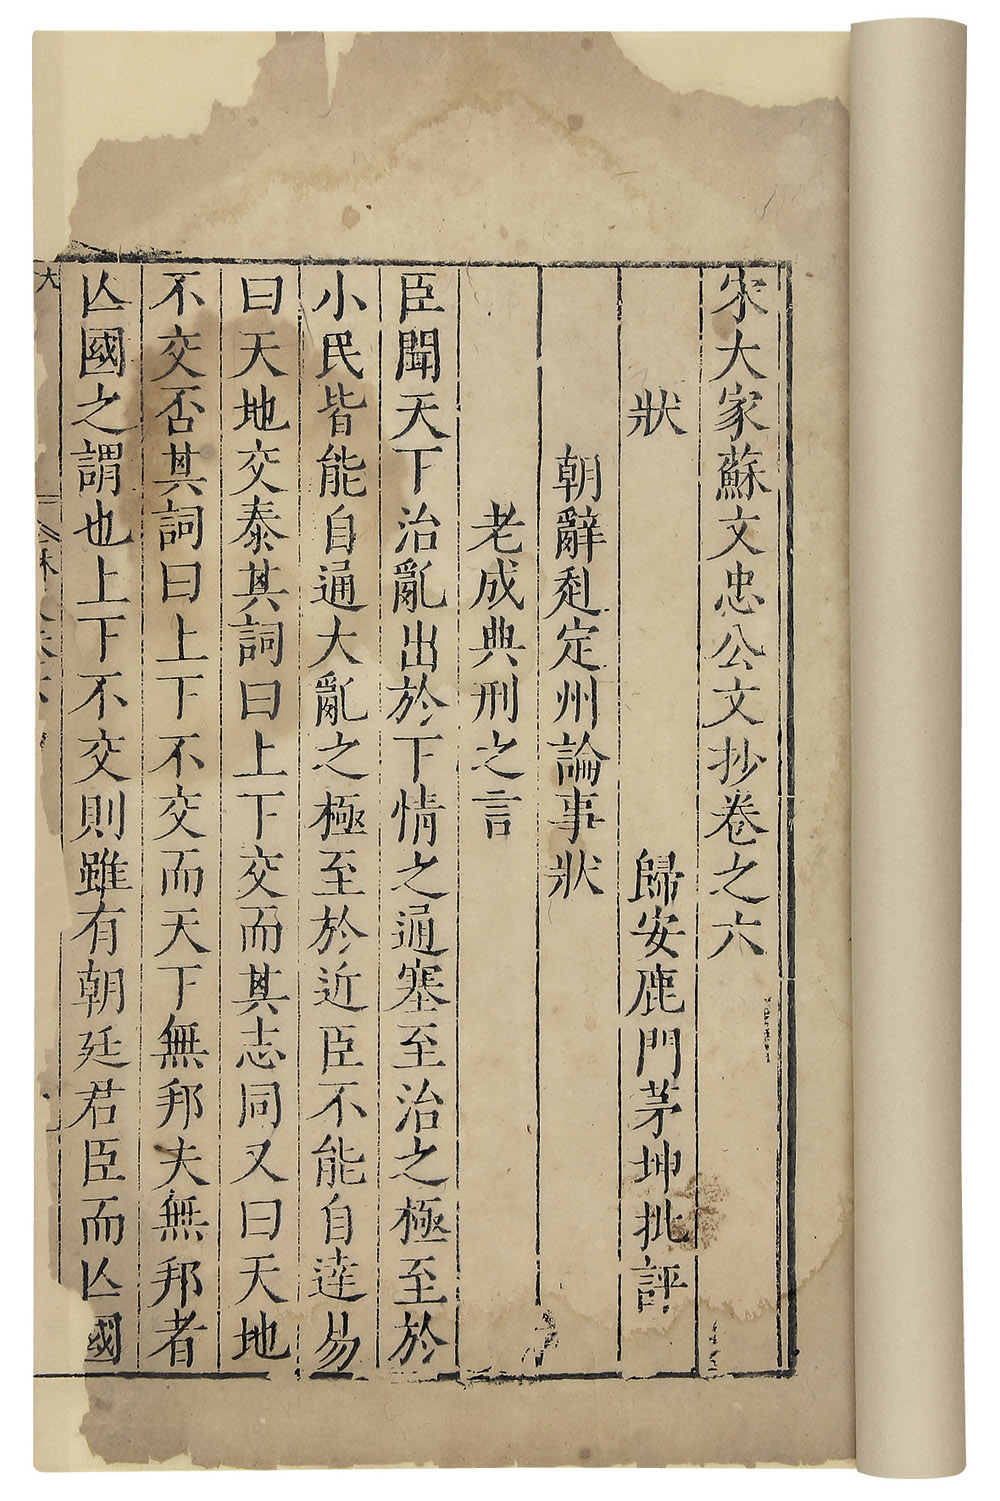 宋大家蘇文忠公文抄卷之六
歸安鹿門茅坤批評
狀
朝辭赴定州論事狀
老成典刑之言
臣聞天下治亂出於下情之通塞至治之極至於
小民皆能自通大亂之極至於近臣不能自達易
曰天地交泰其詞曰上下交而其志同又曰天地
不交否其詞曰上下不交而天下無邦夫無邦者
亾國之謂也上下不交則雖有朝廷君臣而亾國